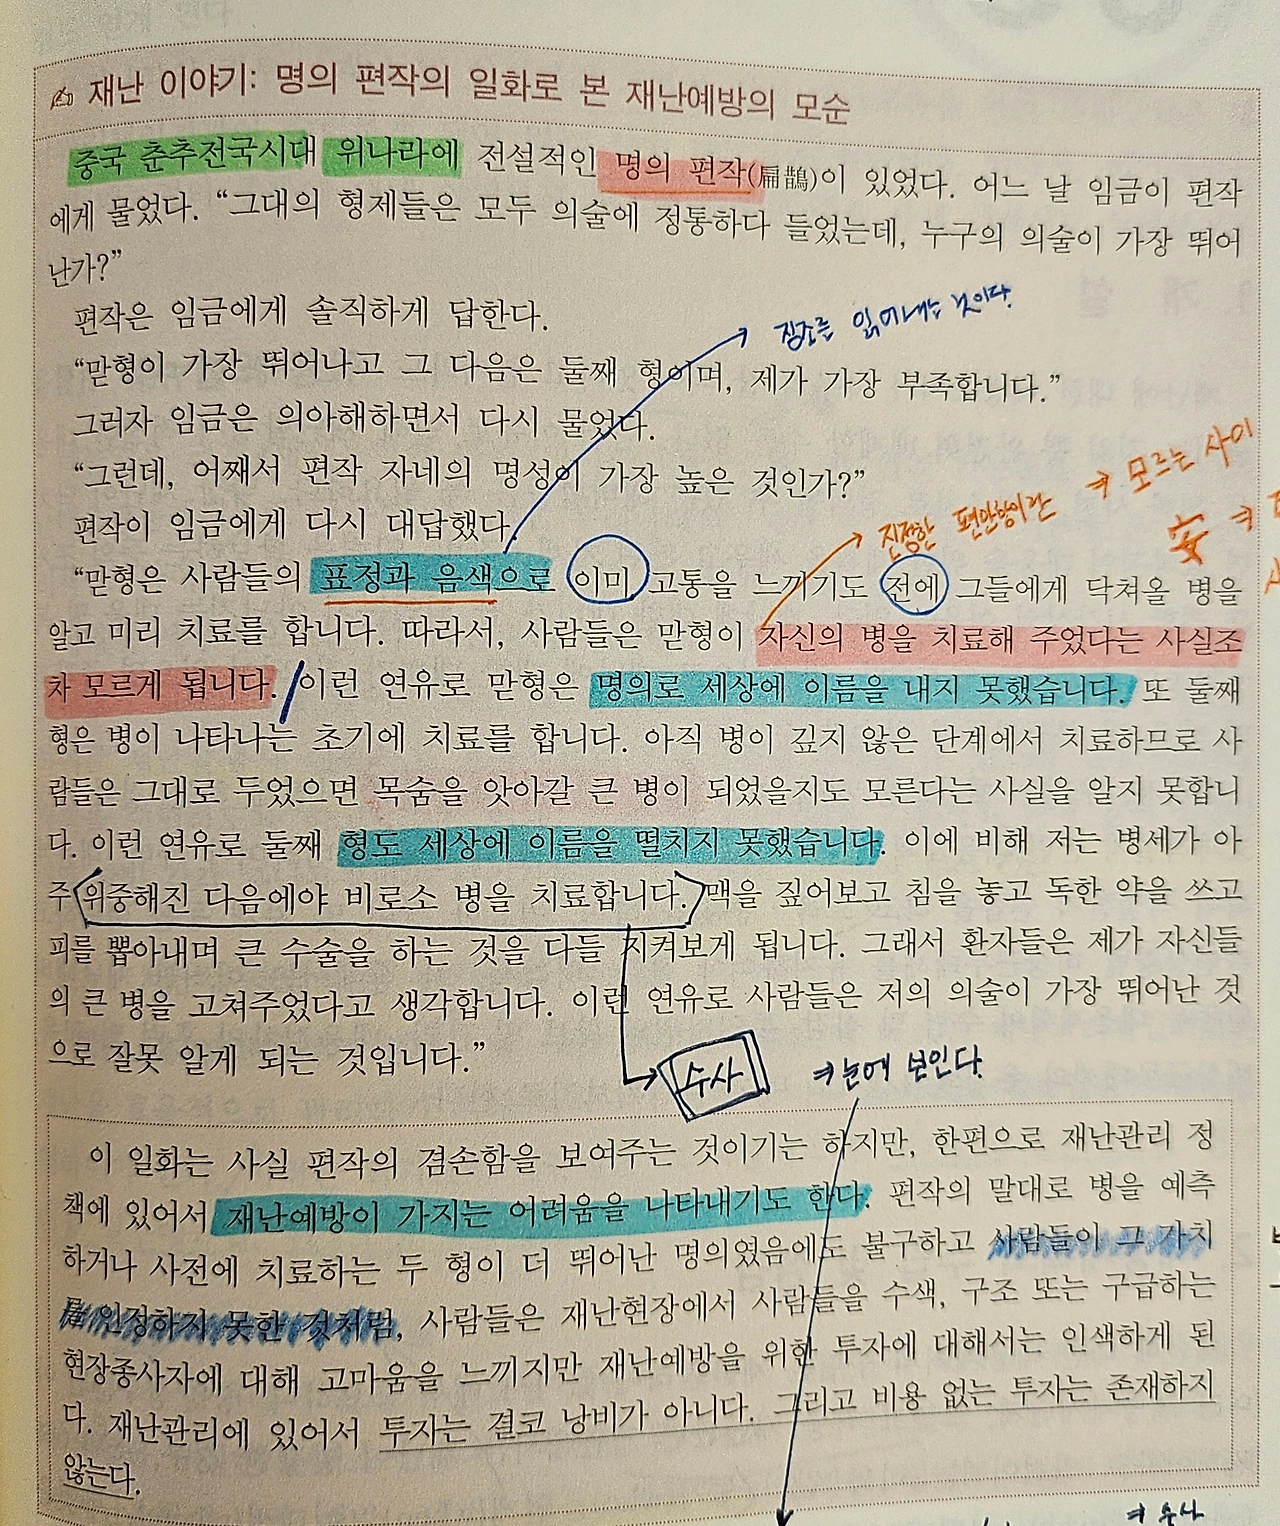 재난 이야기: 명의 편작의 일화로 본 재난예방의 모순
중국 춘추전국시대 위나라에 전설적인 명의 편작(扁鵲)이 있었다. 어느 날 임금이 편작
에게 물었다. “그대의 형제들은 모두 의술에 정통하다 들었는데, 누구의 의술이 가장 뛰어
난가?”
편작은 임금에게 솔직하게 답한다.
징조를 읽어내는 것이다.
“맏형이 가장 뛰어나고 그 다음은 둘째 형이며, 제가 가장 부족합니다.”
그러자 임금은 의아해하면서 다시 물었다.
“그런데, 어째서 편작 자네의 명성이 가장 높은 것인가?”
편작이 임금에게 다시 대답했다.
진정한 편안함이란 → 모르는 사이
安 →
“맏형은 사람들의 표정과 음색으로 이미 고통을 느끼기도 전에 그들에게 닥쳐올 병을
알고 미리 치료를 합니다. 따라서, 사람들은 맏형이 자신의 병을 치료해 주었다는 사실조
차 모르게 됩니다. 이런 연유로 맏형은 명의로 세상에 이름을 내지 못했습니다. 또 둘째
형은 병이 나타나는 초기에 치료를 합니다. 아직 병이 깊지 않은 단계에서 치료하므로 사
람들은 그대로 두었으면 목숨을 앗아갈 큰 병이 되었을지도 모른다는 사실을 알지 못합니
다. 이런 연유로 둘째 형도 세상에 이름을 떨치지 못했습니다. 이에 비해 저는 병세가 아
주 위중해진 다음에야 비로소 병을 치료합니다. 맥을 짚어보고 침을 놓고 독한 약을 쓰고
피를 뽑아내며 큰 수술을 하는 것을 다들 지켜보게 됩니다. 그래서 환자들은 제가 자신들
의 큰 병을 고쳐주었다고 생각합니다. 이런 연유로 사람들은 저의 의술이 가장 뛰어난 것
으로 잘못 알게 되는 것입니다.”
수사 → 눈에 보인다
이 일화는 사실 편작의 겸손함을 보여주는 것이기는 하지만, 한편으로 재난관리 정
책에 있어서 재난예방이 가지는 어려움을 나타내기도 한다. 편작의 말대로 병을 예측
하거나 사전에 치료하는 두 형이 더 뛰어난 명의였음에도 불구하고 사람들이 그 가치
를 인정하지 못한 것처럼, 사람들은 재난현장에서 사람들을 수색, 구조 또는 구급하는
현장종사자에 대해 고마움을 느끼지만 재난예방을 위한 투자에 대해서는 인색하게 된
다. 재난관리에 있어서 투자는 결코 낭비가 아니다. 그리고 비용 없는 투자는 존재하지
않는다.
→ 수사